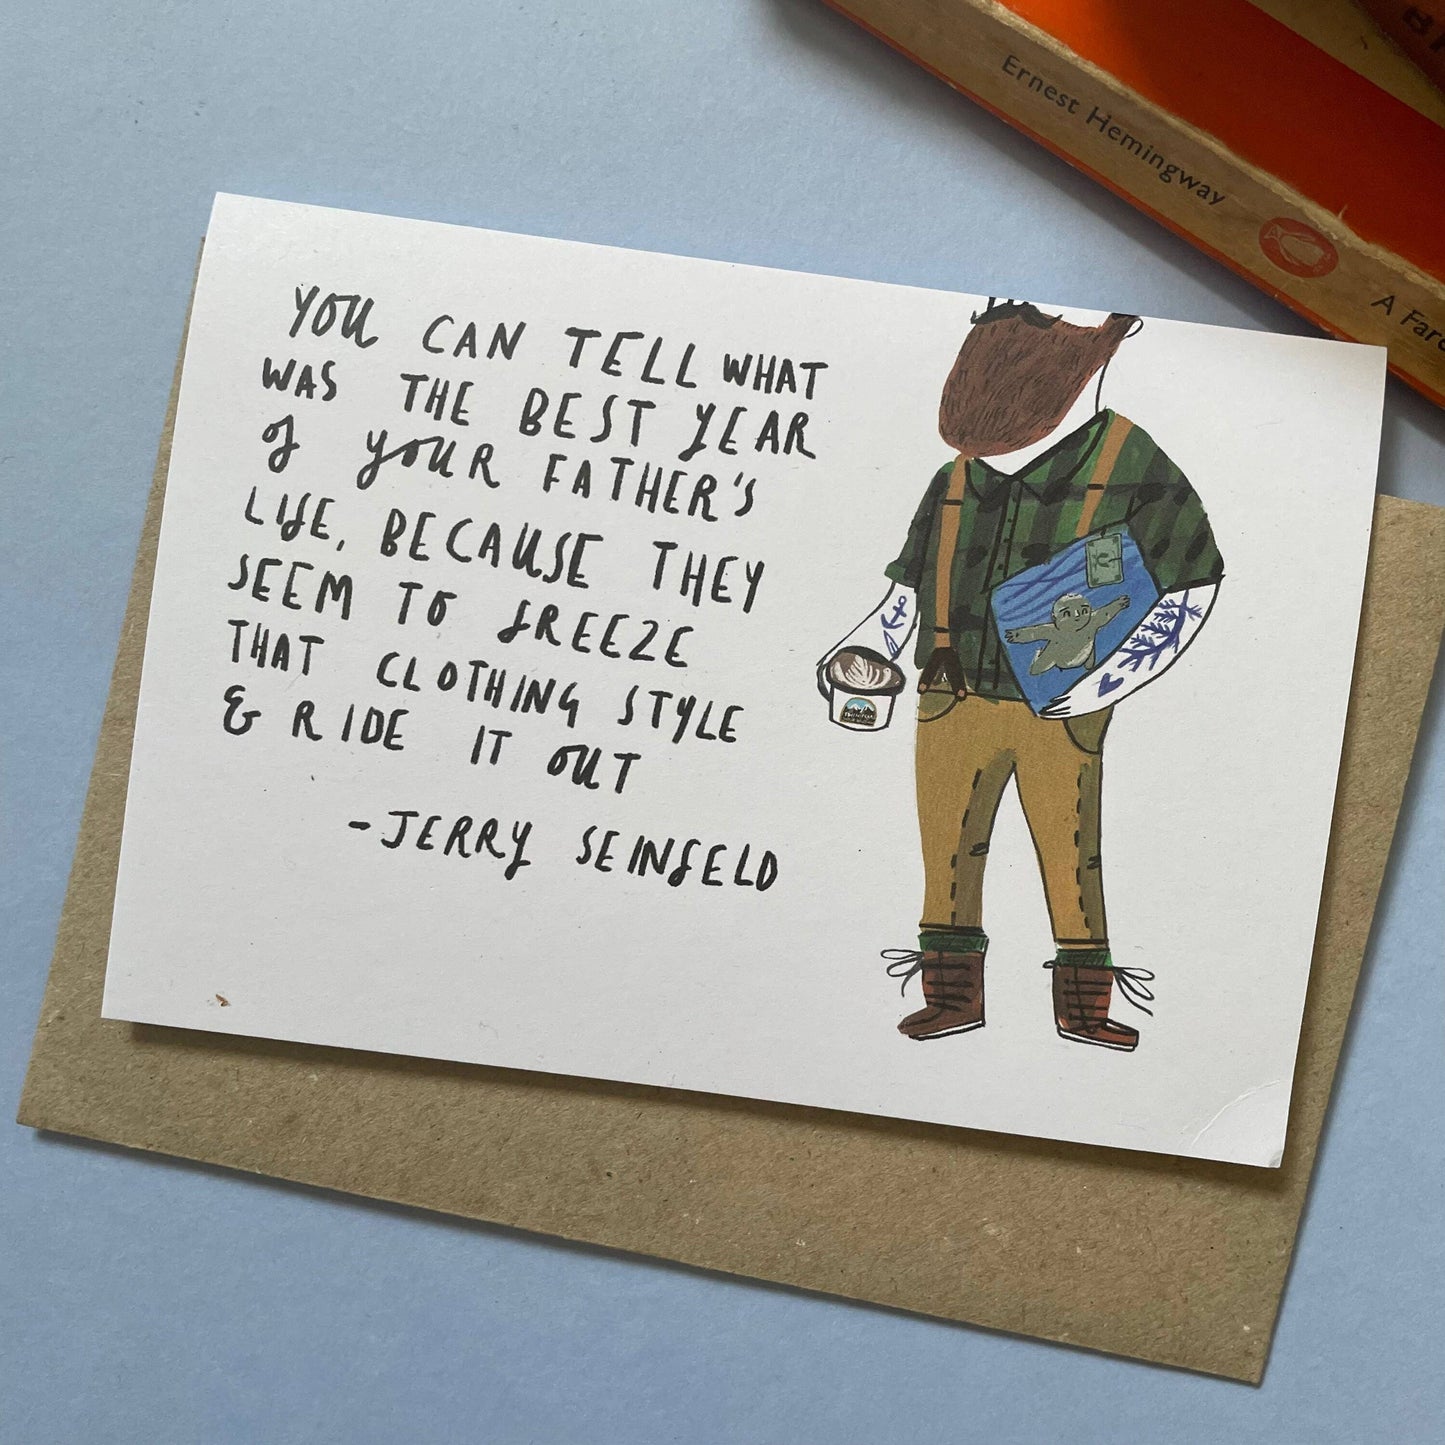 YOU CAN TELL WHAT
WAS THE BEST YEAR
of YOUR FATHER'S
LIFE, BECAUSE THEY
SEEM TO FREEZE
THAT CLOTHING STYLE
& RIDE IT OUT
-JERRY SEINFELD
Ernest Hemingway
A Fare